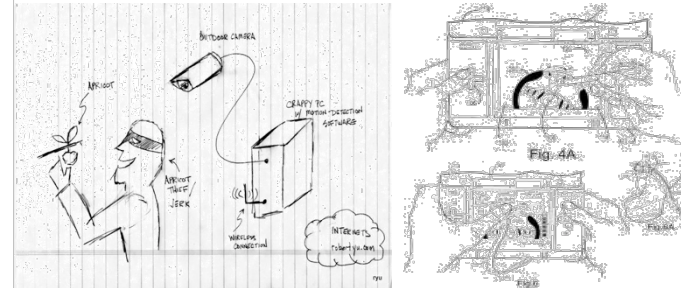 OUTDOOR CAMERA
APRICOT
CRAPPY PC
W/ MOTION-DETECTION
SOFTWARE
APRICOT
THIEF/
JERK
WIRELESS
CONNECTION
INTERNETS
robertyu.com
ryu
Fig. 4A
Fig.6
Fig.6A